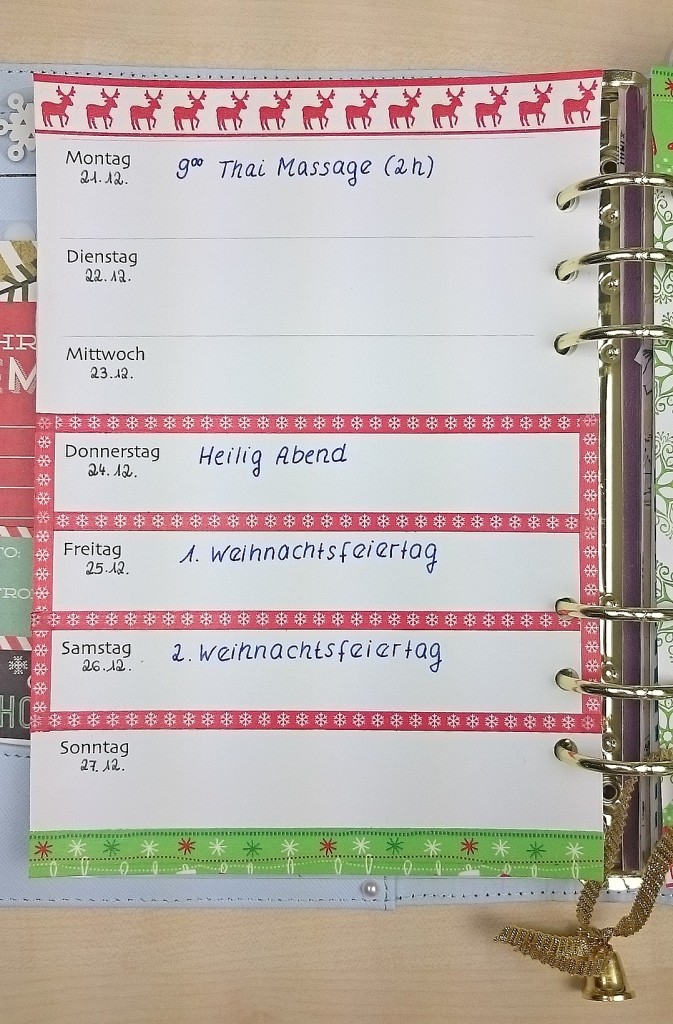 Montag
21.12.
9⁰⁰ Thai Massage (2h)
Dienstag
22.12.
Mittwoch
23.12.
Donnerstag
24.12.
Heilig Abend
Freitag
25.12.
1. Weihnachtsfeiertag
Samstag
26.12.
2. Weihnachtsfeiertag
Sonntag
27.12.
TO: